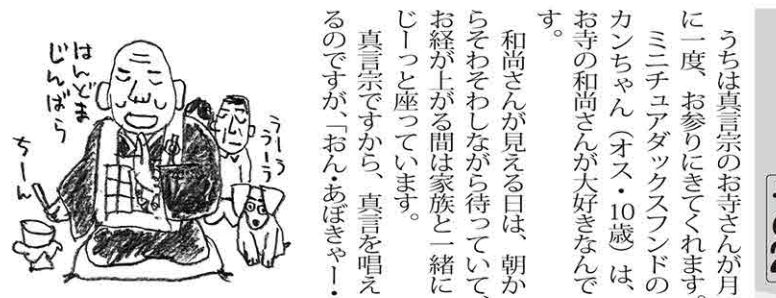 うちは真言宗のお寺さんが月
に一度、お参りにきてくれます。
ミニチュアダックスフンドの
カンちゃん（オス・10歳）は、
お寺の和尚さんが大好きなんで
す。
和尚さんが見える日は、朝か
らそわそわしながら待っていて、
お経が上がる間は家族と一緒に
じーっと座っています。
真言宗ですから、真言を唱え
るのですが、「おん・あぼきゃー・
うーう
うーう
はんどま
じんばら
ちーん